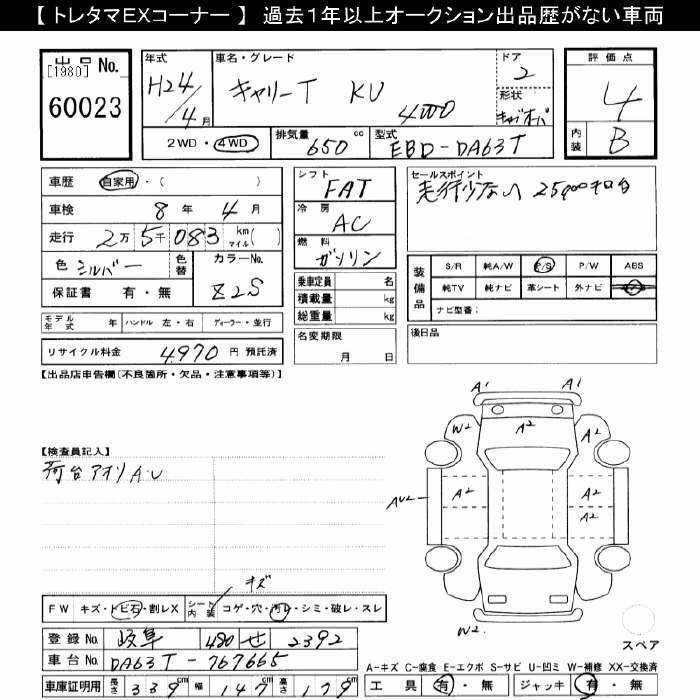 【 トレタマEXコーナー 】 過去１年以上オークション出品歴がない車両
出品 No.
[1980]
60023
年式 H24/4月
車名・グレード キャリーT KU 4WD
ドア 2
形状
2WD・4WD
排気量 650 cc
型式 EBD-DA63T
評価点 4
内装 B
車歴 自家用・( )
車検 8年 4月
走行 2万5千083 km マイル( )
色 シルバー 色替 カラーNo. Z2S
保証書 有・無
モデル年式 年 ハンドル 左・右 ディーラー・並行
リサイクル料金 4,970 円 預託済
シフト FAT
冷房 AC
燃料 ガソリン
乗車定員 名
積載量 kg
総重量 kg
名変期限 月 日
セールスポイント
走行少ない 25,000キロ台
装備品
S/R 純A/W P/S P/W ABS
純TV 純ナビ 革シート 外ナビ
ナビ型番：
後日品
【出品店申告欄(不良箇所・欠品・注意事項等)】
【検査員記入】
荷台アオリA・U
A1 A1
W2 A2 A2
AU2 A2 A2
A2
W2
スペア
キズ
FW キズ・トビ石・割レX シート内装 コゲ・穴・汚レ・シミ・破レ・スレ
登録No. 岐阜 480 せ 2392
車台No. DA63T-767665
車庫証明用 長さ 339cm 幅 147cm 高さ 179cm
A-キズ C-腐食 E-エクボ S-サビ U-凹ミ W-補修 XX-交換済
工具 有・無 ジャッキ 有・無